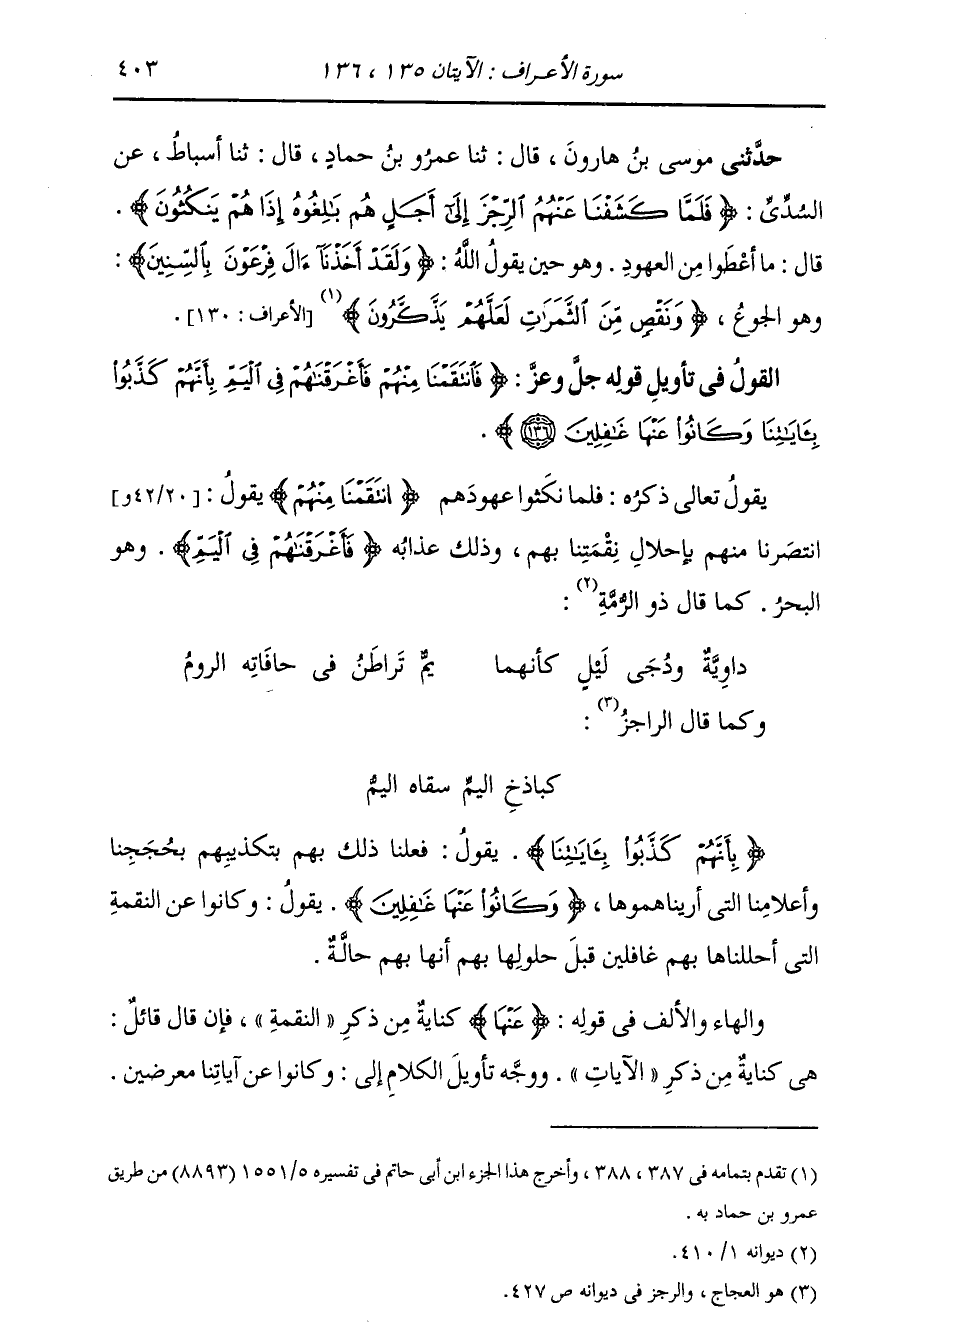 سورة الأعراف : الآيتان ١٣٥ ، ١٣٦ ٤٠٣
حدَّثني موسى بنُ هارونَ ، قال : ثنا عمرُو بنُ حمادٍ ، قال : ثنا أسباطُ ، عن
السُّدِّىِّ : ﴿ فَلَمَّا كَشَفْنَا عَنْهُمُ ٱلرِّجْزَ إِلَىٰٓ أَجَلٍ هُم بَٰلِغُوهُ إِذَا هُمْ يَنكُثُونَ ﴾ .
قال : ما أعْطَوا مِن العهودِ . وهو حين يقولُ اللَّهُ : ﴿ وَلَقَدْ أَخَذْنَآ ءَالَ فِرْعَوْنَ بِٱلسِّنِينَ ﴾ :
وهو الجوعُ ، ﴿ وَنَقْصٍ مِّنَ ٱلثَّمَرَٰتِ لَعَلَّهُمْ يَذَّكَّرُونَ ﴾ (١) [الأعراف : ١٣٠] .
القولُ فى تأويلِ قولِه جلَّ وعزَّ : ﴿ فَٱنتَقَمْنَا مِنْهُمْ فَأَغْرَقْنَٰهُمْ فِى ٱلْيَمِّ بِأَنَّهُمْ كَذَّبُوا۟
بِـَٔايَٰتِنَا وَكَانُوا۟ عَنْهَا غَٰفِلِينَ ١٣٦ ﴾ .
يقولُ تعالى ذكرُه : فلما نكَثوا عهودَهم ﴿ انتَقَمْنَا مِنْهُمْ ﴾ يقولُ : [٤٢/٢٠و]
انتصَرنا منهم بإحلالِ نِقْمَتِنا بهم ، وذلك عذابُه ﴿ فَأَغْرَقْنَٰهُمْ فِى ٱلْيَمِّ ﴾ . وهو
البحرُ . كما قال ذو الرُّمَّةِ (٢) :
داوِيَّةٌ ودُجَى لَيْلٍ كأنهما يمٌّ تَراطَنُ فى حافَاتِه الرومُ
وكما قال الراجزُ (٣) :
كباذخِ اليمِّ سقاه اليمُّ
﴿ بِأَنَّهُمْ كَذَّبُوا۟ بِـَٔايَٰتِنَا ﴾ . يقولُ : فعلنا ذلك بهم بتكذيبِهم بحُجَجِنا
وأعلامِنا التى أريناهموها ، ﴿ وَكَانُوا۟ عَنْهَا غَٰفِلِينَ ﴾ . يقولُ : وكانوا عن النقمةِ
التى أحللناها بهم غافلين قبلَ حلولِها بهم أنها بهم حالَّةٌ .
والهاء والألف فى قولِه : ﴿ عَنْهَا ﴾ كنايةٌ مِن ذكرِ « النقمةِ » ، فإن قال قائلٌ :
هى كنايةٌ مِن ذكرِ « الآياتِ » . ووجَّه تأويلَ الكلامِ إلى : وكانوا عن آياتِنا معرضين .
(١) تقدم بتمامه فى ٣٨٧ ، ٣٨٨ ، وأخرج هذا الجزء ابن أبى حاتم فى تفسيره ١٥٥١/٥ (٨٨٩٣) من طريق
عمرو بن حماد به .
(٢) ديوانه ١/ ٤١٠.
(٣) هو العجاج ، والرجز فى ديوانه ص ٤٢٧.